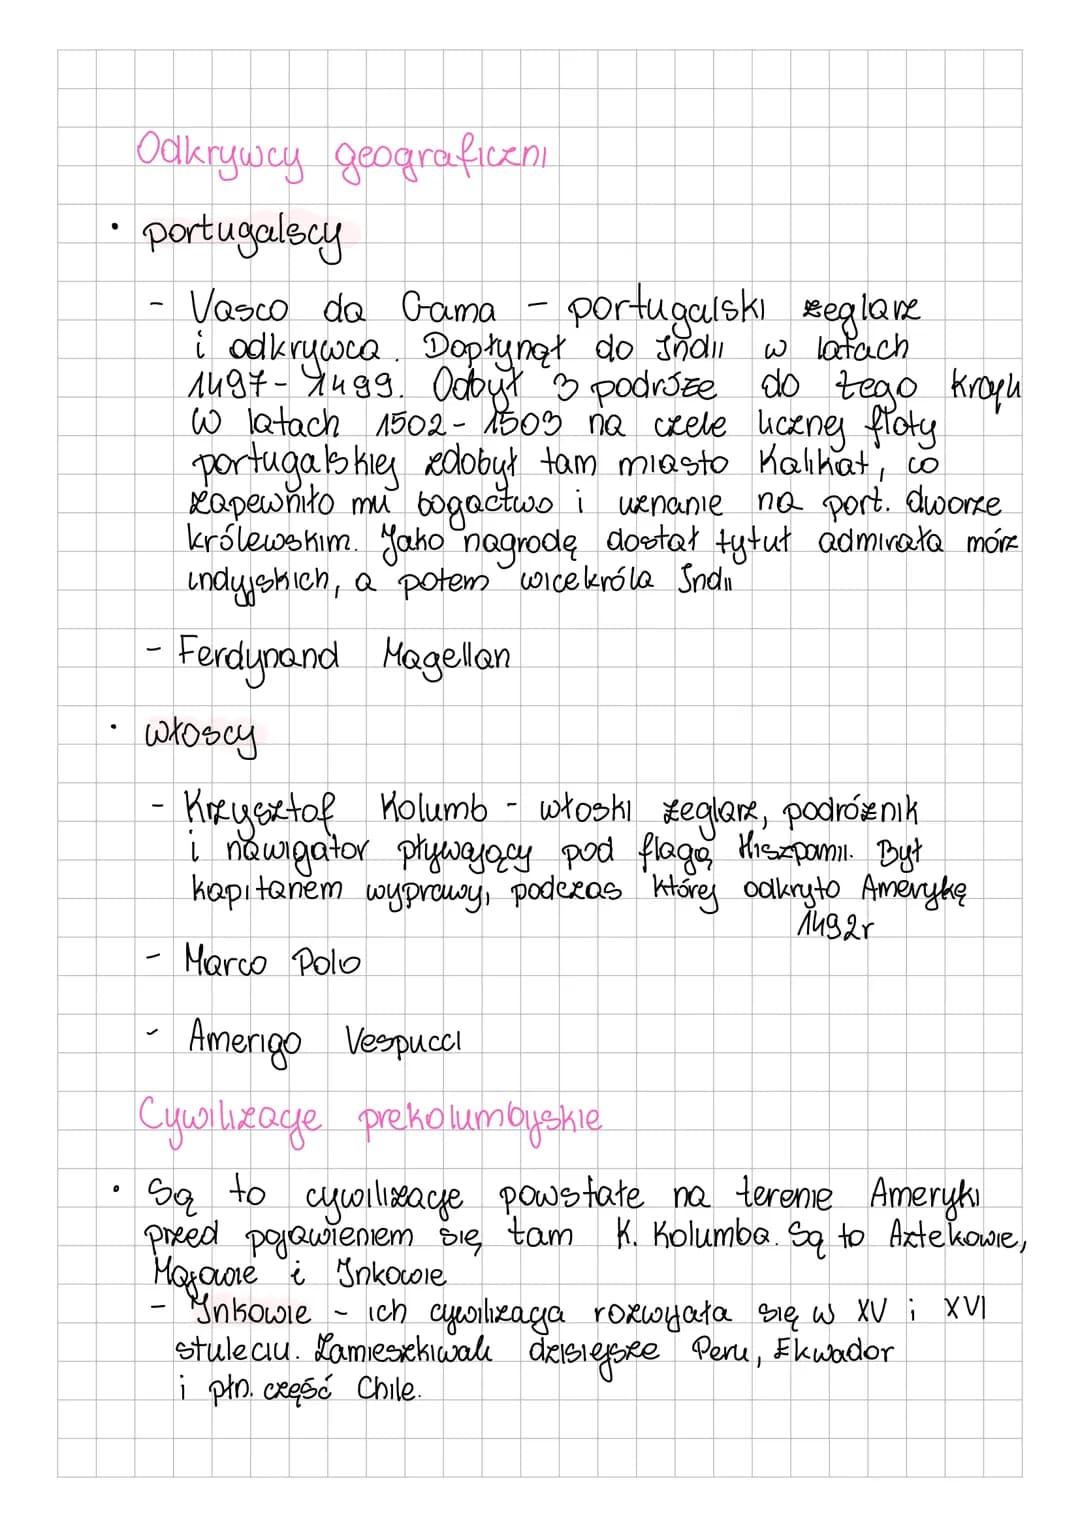 Odkrywcy geograficzni
• portugalscy
- Vasco da Gama - portugalski żeglarz
i odkrywca. Dopłynął do Indii w latach
1497-1499. Odbył 3 podróże do tego kraju
W latach 1502-1503 na czele licznej floty
portugalskiej zdobył tam miasto Kalikat, co
zapewniło mu bogactwo i uznanie na port. dworze
królewskim. Jako nagrodę dostał tytuł admirała mórz
indyjskich, a potem wicekróla Indii
- Ferdynand Magellan
• włoscy
- Krzysztof Kolumb - włoski żeglarz, podróżnik
i nawigator pływający pod flagą Hiszpanii. Był
kapitanem wyprawy, podczas której odkryto Amerykę
1492r
- Marco Polo
- Amerigo Vespucci
Cywilizacje prekolumbyjskie
• Są to cywilizacje powstałe na terenie Ameryki
przed pojawieniem się tam K. Kolumba. Są to Aztekowie,
Majowie i Inkowie
- Inkowie - ich cywilizacja rozwijała się w XV i XVI
stuleciu. Zamieszkiwali dzisiejsze Peru, Ekwador
i płn. część Chile.